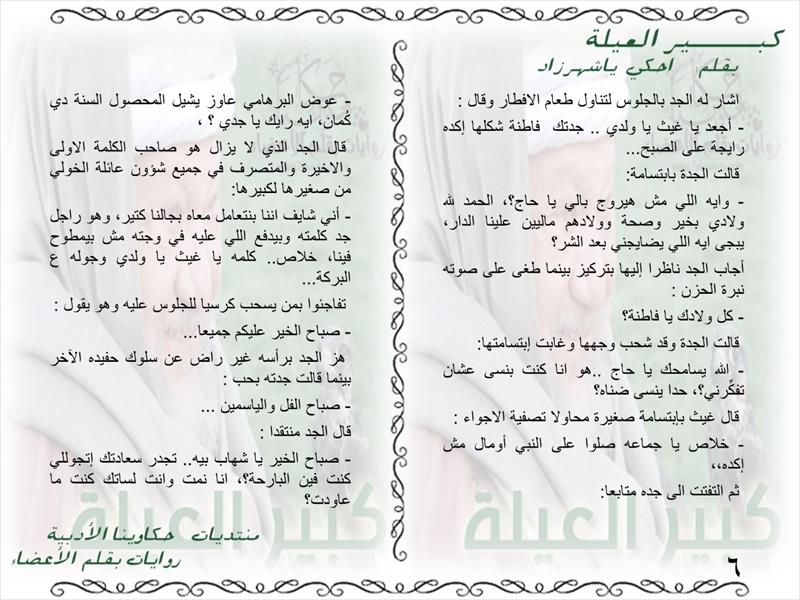 كبـــــــير العيلة
بقلم احكي ياشهرزاد
اشار له الجد بالجلوس لتناول طعام الافطار وقال :
- أجعد يا غيث يا ولدي .. جدتك فاطنة شكلها إكده
رايجة على الصبح...
قالت الجدة بابتسامة:
- وايه اللي مش هيروج بالي يا حاج؟، الحمد لله
ولادي بخير وصحة وولادهم ماليين علينا الدار،
يبجى ايه اللي يضايجني بعد الشر؟
أجاب الجد ناظرا إليها بتركيز بينما طغى على صوته
نبرة الحزن :
- كل ولادك يا فاطنة؟
قالت الجدة وقد شحب وجهها وغابت إبتسامتها:
- الله يسامحك يا حاج ..هو انا كنت بنسى عشان
تفكّرني؟، حدا ينسى ضناه؟
قال غيث بإبتسامة صغيرة محاولا تصفية الاجواء :
- خلاص يا جماعه صلوا على النبي أومال مش
إكده،،
ثم التفتت الى جده متابعا:
- عوض البرهامي عاوز يشيل المحصول السنة دي
كُمان، ايه رايك يا جدي ؟ ،
قال الجد الذي لا يزال هو صاحب الكلمة الاولى
والاخيرة والمتصرف في جميع شؤون عائلة الخولي
من صغيرها لكبيرها:
- أني شايف اننا بنتعامل معاه بجالنا كتير، وهو راجل
جد كلمته وبيدفع اللي عليه في وجته مش بيمطوح
فينا، خلاص.. كلمه يا غيث يا ولدي وجوله ع
البركة...
تفاجئوا بمن يسحب كرسيا للجلوس عليه وهو يقول :
- صباح الخير عليكم جميعا...
هز الجد برأسه غير راض عن سلوك حفيده الآخر
بينما قالت جدته بحب :
- صباح الفل والياسمين ...
قال الجد منتقدا :
- صباح الخير يا شهاب بيه.. تجدر سعادتك إتجوللي
كنت فين البارحة؟، انا نمت وانت لساتك كنت ما
عاودت؟
كبير العيلة
كبير العيلة
منتديات حكاوينا الأدبية
روايات بقلم الأعضاء
٦